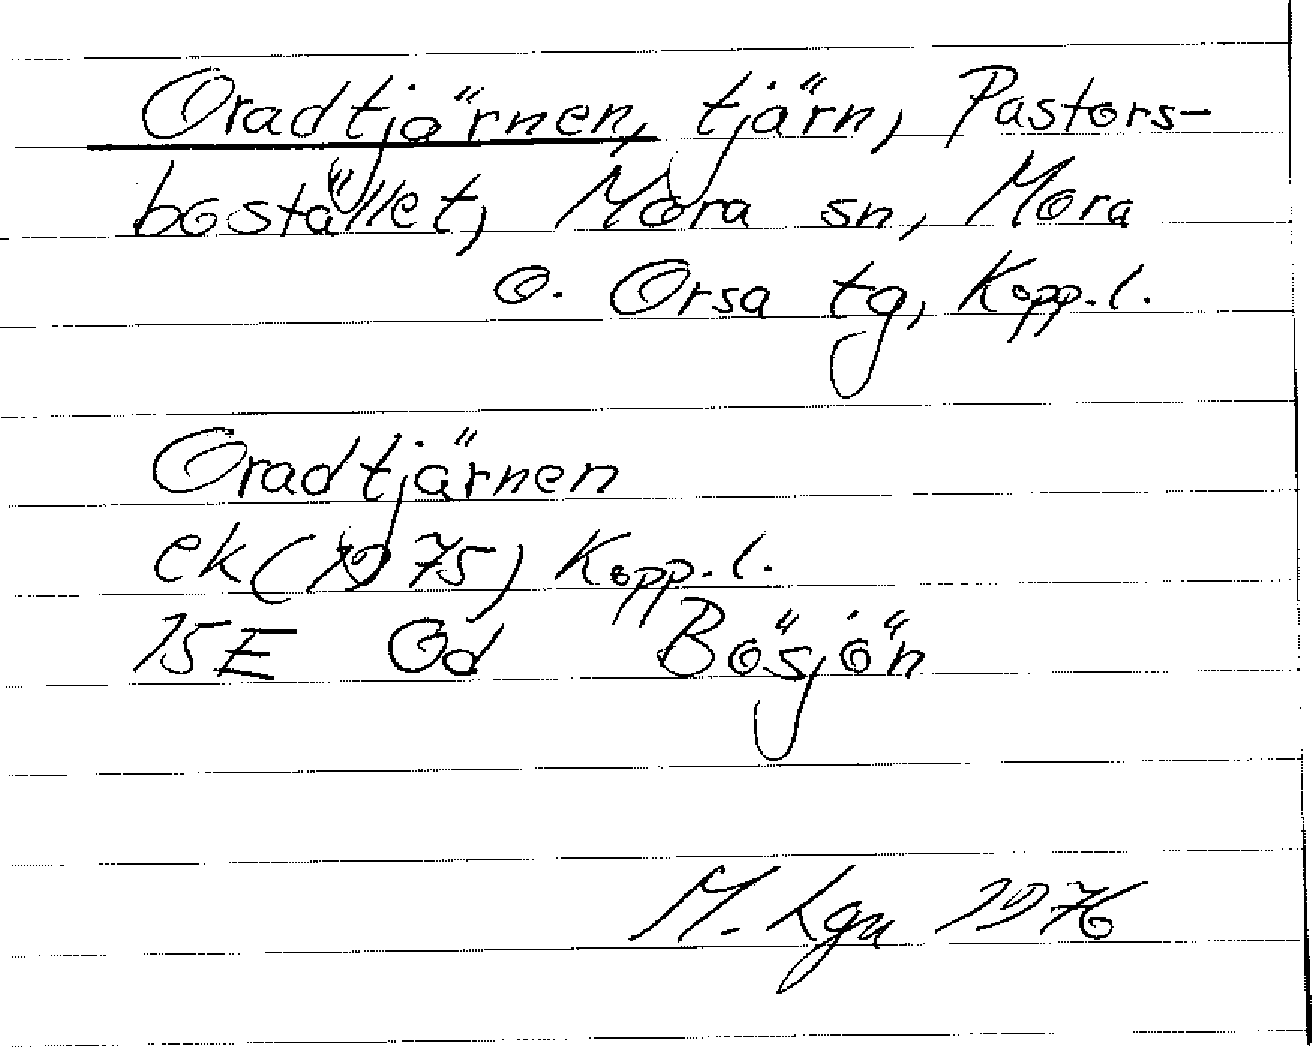 Oradtjärnen, tjärn, Pastors-
bostället, Mora sn, Mora
o. Orsa tg, Kopp.l.
Oradtjärnen
ek (1975) Kopp.l.
15E 0d Bösjön
M. Lgn 1976